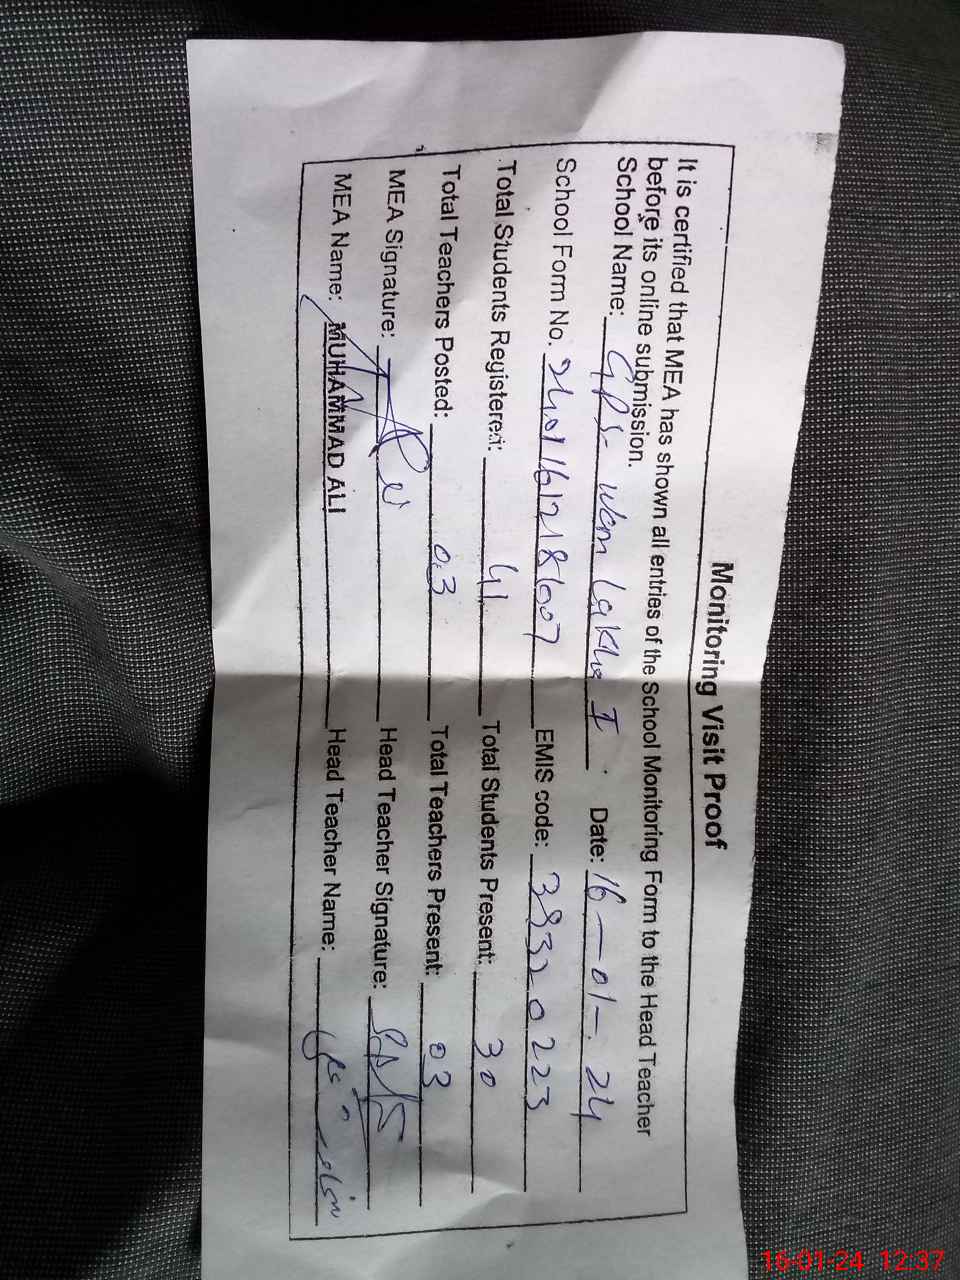 Monitoring Visit Proof
It is certified that MEA has shown all entries of the School Monitoring Form to the Head Teacher
before its online submission.
School Name: GPS Wan Lakha I Date: 16-01-24
School Form No. 24011612181007 EMIS code: 38320223
Total Students Registered: 41 Total Students Present: 30
Total Teachers Posted: 03 Total Teachers Present: 03
MEA Signature: Head Teacher Signature:
MEA Name: MUHAMMAD ALI Head Teacher Name:
16-01-24 12:37